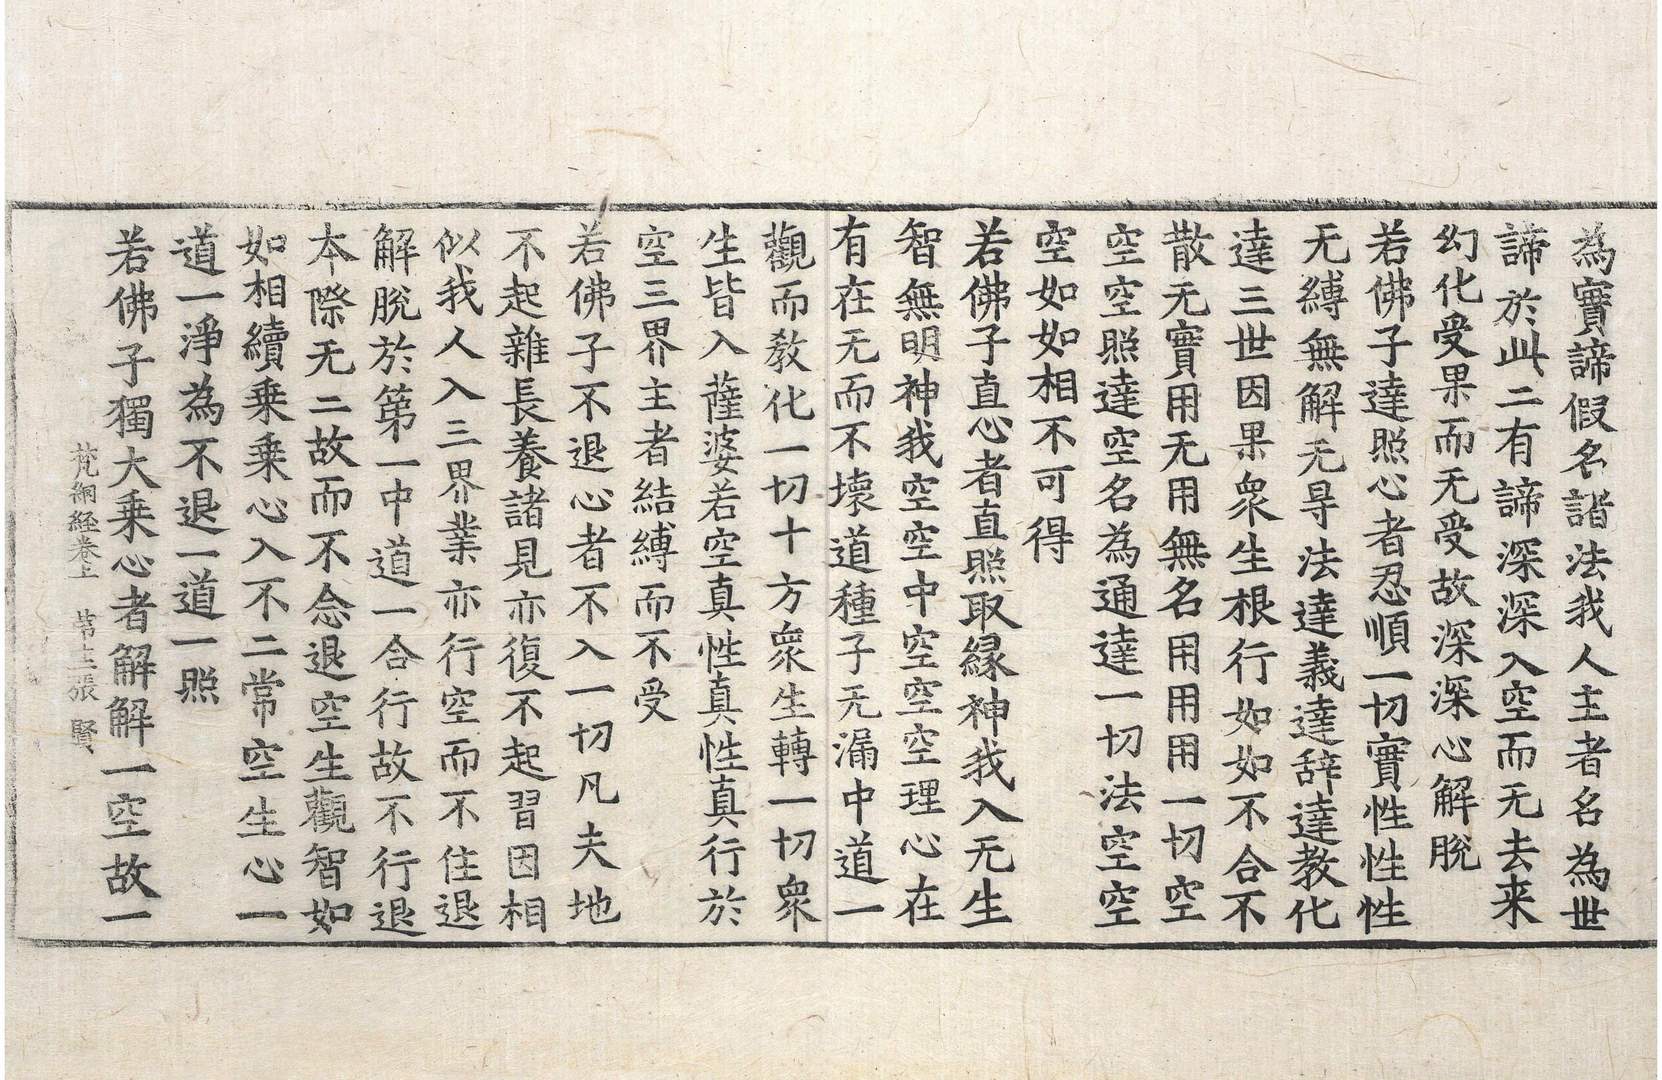 為實諦假名諸法我人主者名為世
諦於此二有諦深深入空而无去来
幻化受果而无受故深深心解脫
若佛子達照心者忍順一切實性性性
无縛無解无㝵法達義達辞達教化
達三世因果衆生根行如如不合不
散无實用无用無名用用用一切空
空空照達空名為通達一切法空空
空如如相不可得
若佛子直心者直照取緣神我入无生
智無明神我空空中空空空理心在
有在无而不壞道種子无漏中道一
觀而教化一切十方衆生轉一切衆
生皆入薩婆若空真性真性真行於
空三界主者結縛而不受
若佛子不退心者不入一切凡夫地
不起雜長養諸見亦復不起習因相
似我人入三界業亦行空而不住退
解脫於第一中道一合行故不行退
本際无二故而不念退空生觀智如
如相續乗乗心入不二常空生心一
道一淨為不退一道一照
若佛子獨大乗心者解解一空故一
梵網経卷上 苐七張 賢